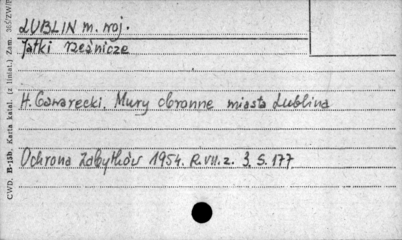 LUBLIN m. woj.
Jatki rzeźnicze
H. Gawarecki, Mury obronne miasta Lublina
Ochrona Zabytków 1954. R.VII. z. 3. S. 177
CWD. B-15b. Karta katal. (z liniat.) Zam.